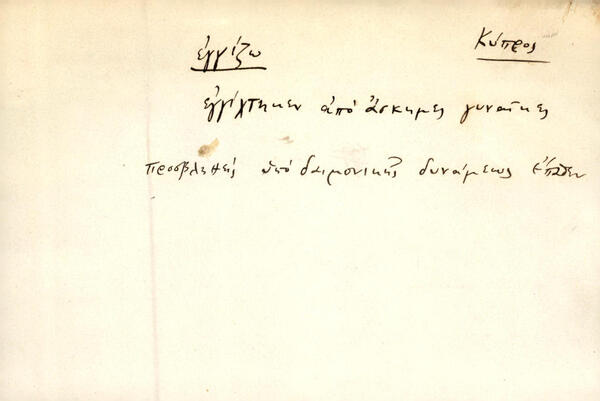 ἐγγίζω Κύπρος
ἐγγίχτηκεν ἀπό ἄσκημες γυναῖκες
προσβληθείς ὑπό δαιμονικῆς δυνάμεως ἔπαθεν